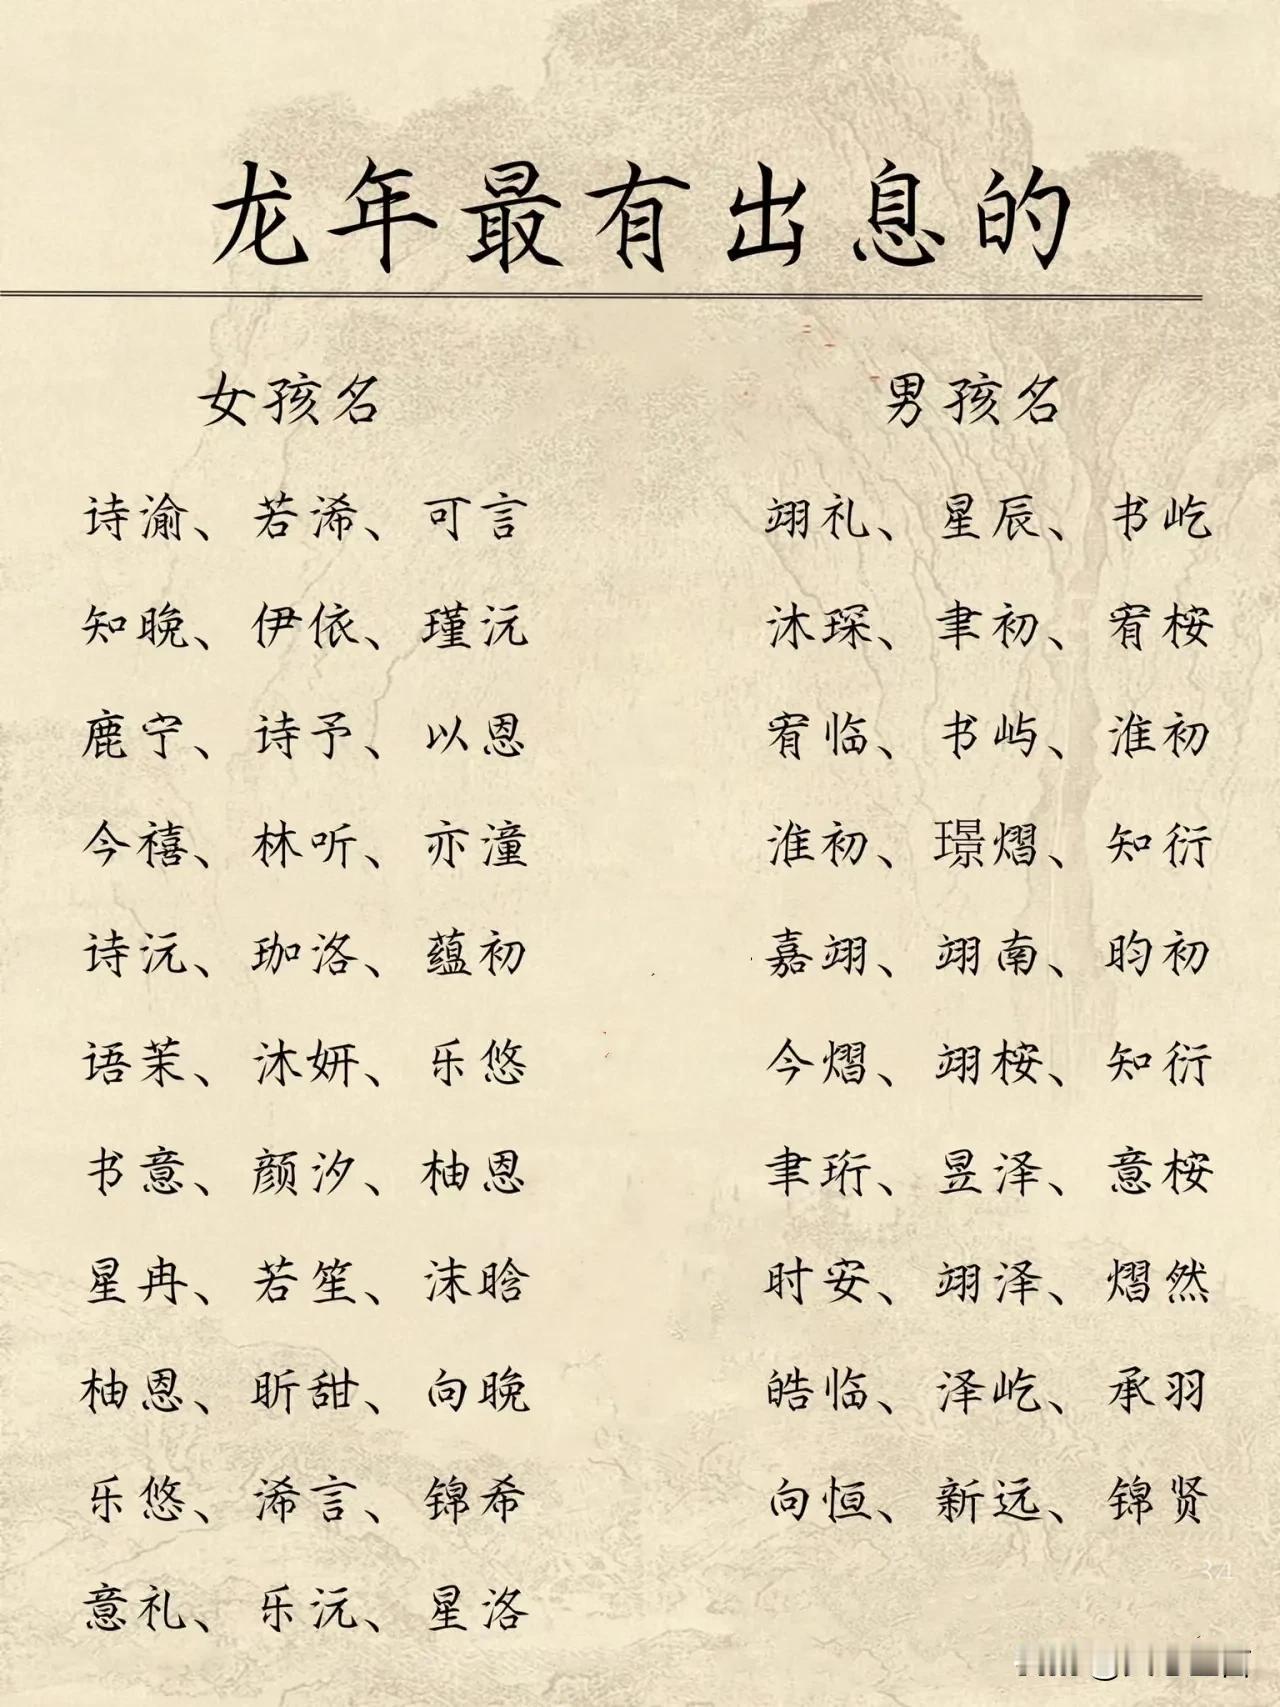 龙年最有出息的
女孩名
诗渝、若浠、可言
知晚、伊依、瑾沅
鹿宁、诗予、以恩
今禧、林听、亦潼
诗沅、珈洛、蕴初
语茉、沐妍、乐悠
书意、颜汐、柚恩
星冉、若笙、沫晗
柚恩、昕甜、向晚
乐悠、浠言、锦希
意礼、乐沅、星洛
男孩名
翊礼、星辰、书屹
沐琛、聿初、宥桉
宥临、书屿、淮初
淮初、璟熠、知衍
嘉翊、翊南、昀初
今熠、翊桉、知衍
聿珩、昱泽、意桉
时安、翊泽、熠然
皓临、泽屹、承羽
向恒、新远、锦贤